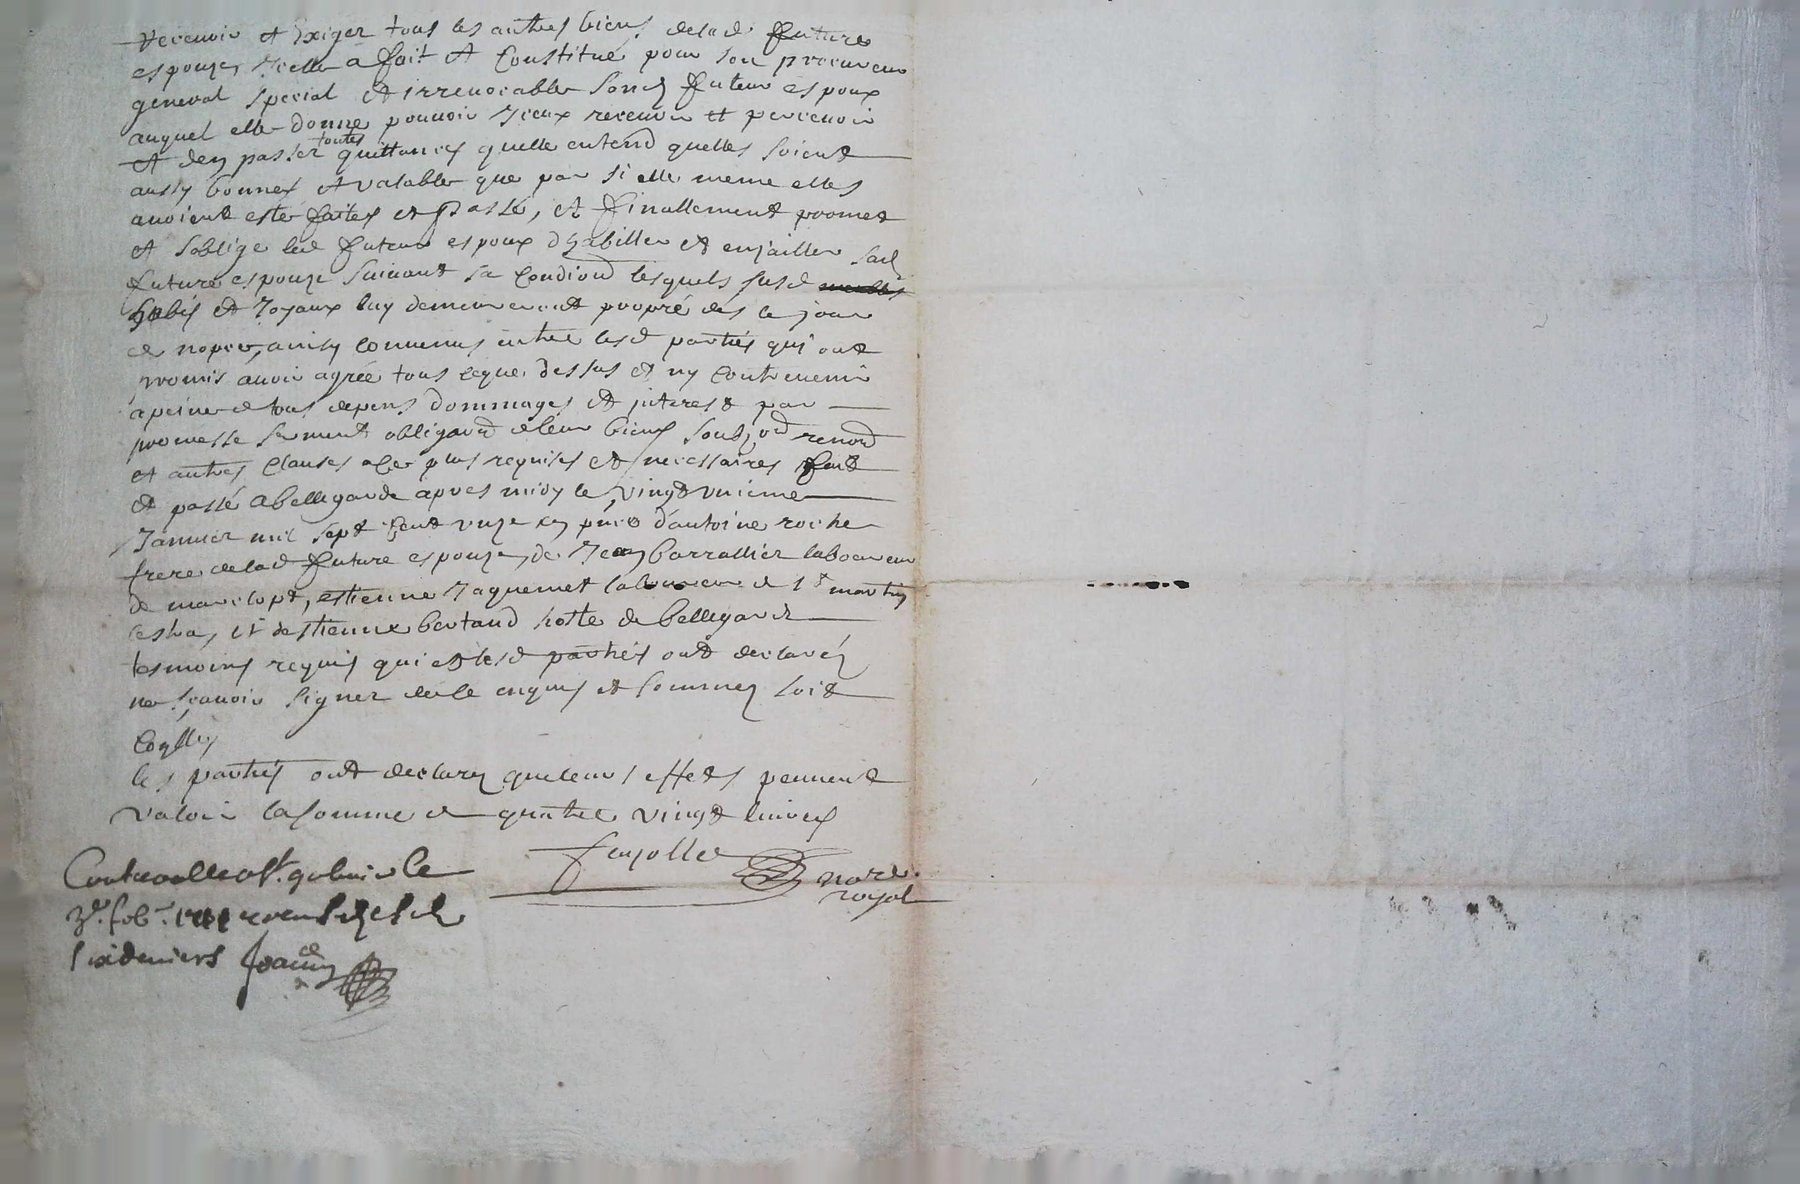 recevoir et Exiger tous les autres biens delad future
espouze, Icelle a fait et Constitué pour son procureur
general special et irrevocable sond futeur espoux
auquel elle donne pouvoir Iceux recevoir et percevoir
et den passer toutes quittances quelle entend quelles soient
aussy bonnes et valable que par si elle meme elles
avoient esté faites et passé, et finallement promet
et soblige led futeur espoux dhabiller et enjailler sad
future espouze suivant sa Condiond lesquels susd meubles
habis et Joyaux luy demeureront propre des le jour
de nopces, ainsy convenus entre lesd parties qui ont
promis avoir agrée tous ceque dessus et ny Contrevenir
apeine de tous depens dommages et interest par
promesse serment obligaond de leur biens soubz.ond renond
et autres Clauses a ce plus requises et necessaires fait
et passé a bellegarde apres midy le vingt unieme
Janvier mil sept Cent unze en pnce d'antoine roche
frere delad future espouze, de Jean barrallier laboureur
de marclopt, estienne Jaquemet laboureur de st martin
lestra, et destienne bertand hoste de bellegarde
tesmoins requis qui et lesd parties ont declarés
ne sçavoir signer de ce enquis et sommez soit
Collé
les parties ont declaré que leurs effets peuvent
valoir la somme de quatre vingt livres
fayolle nore royal
Controollé a st. galmier le
3e. feb. 1711 receu
six deniers